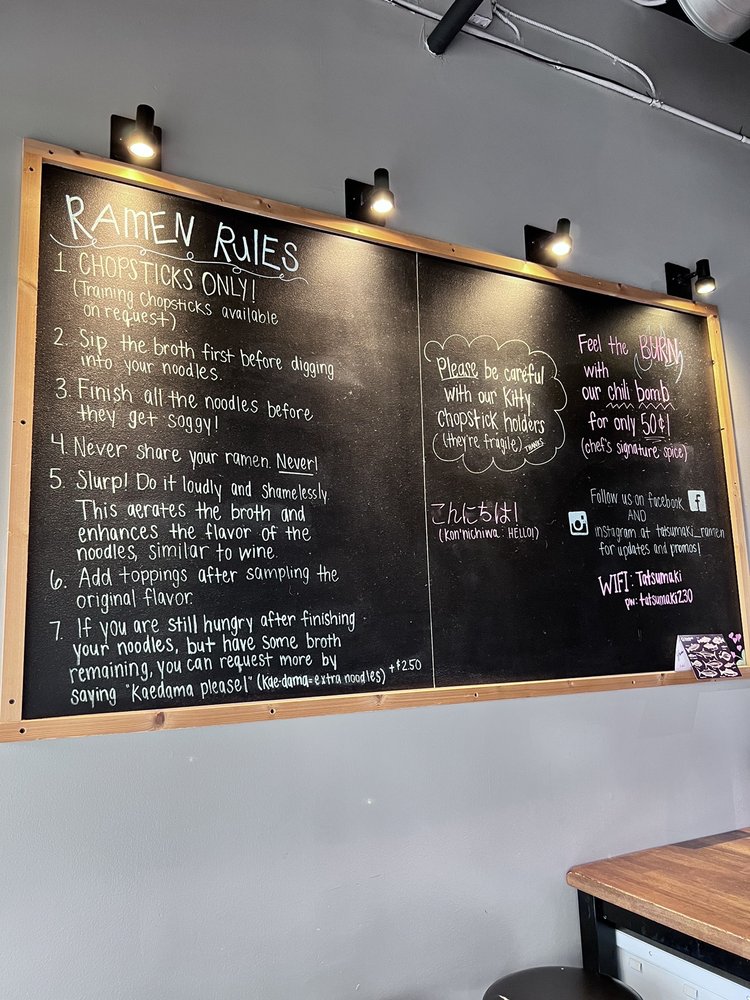 RAMEN RULES
1. CHOPSTICKS ONLY!
(Training chopsticks available
on request)
2. Sip the broth first before digging
into your noodles.
3. Finish all the noodles before
they get soggy!
4. Never share your ramen. Never!
5. Slurp! Do it loudly and shamelessly.
This aerates the broth and
enhances the flavor of the
noodles, similar to wine.
6. Add toppings after sampling the
original flavor.
7. If you are still hungry after finishing
your noodles, but have some broth
remaining, you can request more by
saying "Kaedama please!" (kae-dama=extra noodles) +$2.50
Please be careful
with our Kitty
chopstick holders
(they're fragile) THANKS
こんにちは!
(kon'nichiwa: HELLO!)
Feel the BURN
with
our chili bomb
for only 50¢!
(chef's signature spice)
Follow us on facebook f
AND
instagram at tatsumaki_ramen
for updates and promos!
WIFI: Tatsumaki
pw: tatsumaki230